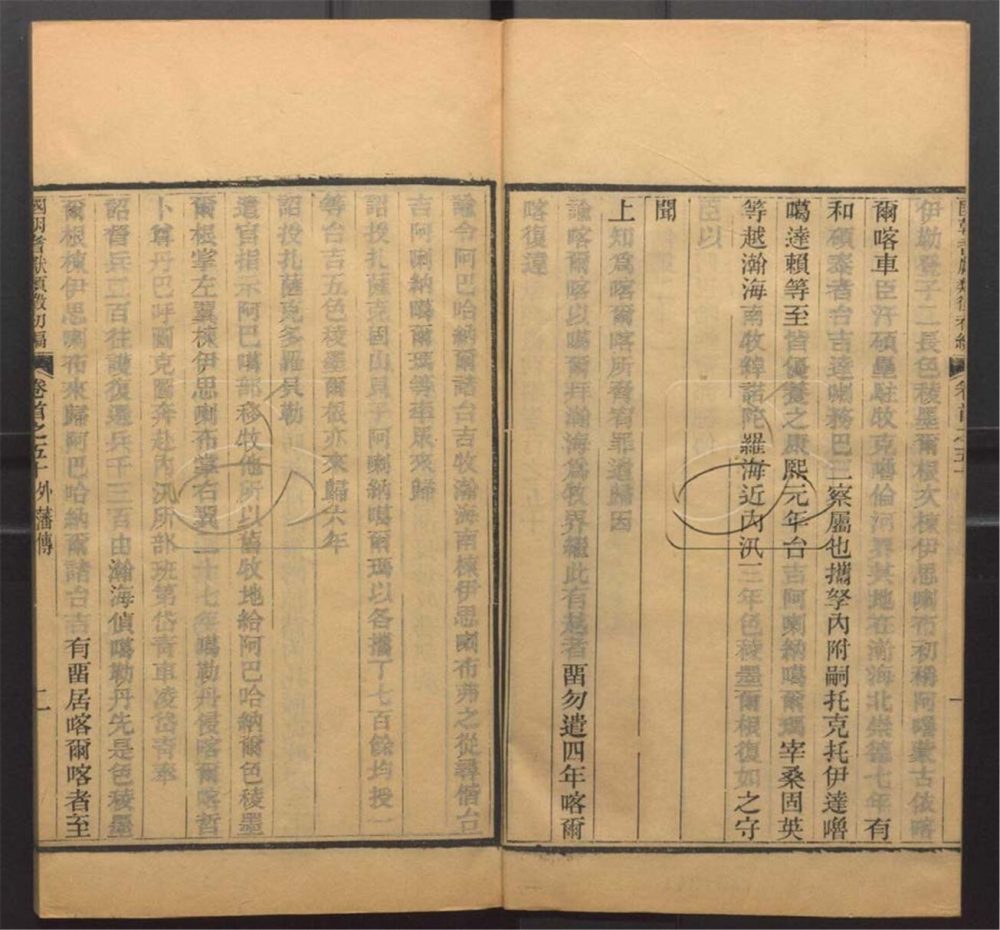 伊勒登子二長色稜墨爾根次棟伊思喇布初稱阿嚕蒙古依喀
爾喀車臣汗碩壘駐牧克嚕倫河界其地在瀚海北崇德七年有
和碩泰者台吉達喇務巴三察屬也攜孥內附嗣托克托伊達嚕
噶達賴等至皆優養之康熙元年台吉阿喇納噶爾瑪宰桑固英
等越瀚海南牧鋍諾陀羅海近內汛三年色稜墨爾根復如之守
臣以
聞
上知為喀爾喀所脅宥罪遣歸因
諭喀爾喀以噶爾拜瀚海為牧界繼此有越者畱勿遣四年喀爾
喀復違
諭令阿巴哈納爾諸台吉牧瀚海南棟伊思喇布弗之從尋偕台
吉阿喇納噶爾瑪等率眾來歸
詔授扎薩克固山貝子阿喇納噶爾瑪以各攜丁七百餘均授一
等台吉五色稜墨爾根亦來歸六年
詔授扎薩克多羅貝勒
遣官指示阿巴噶部移牧他所以舊牧地給阿巴哈納爾色稜墨
爾根掌左翼棟伊思喇布掌右翼二十七年噶勒丹侵喀爾喀哲
卜尊丹巴呼圖克圖奔赴內汛所部班第岱青車凌岱青率
詔督兵二百往護復選兵千三百由瀚海偵噶勒丹先是色稜墨
爾根棟伊思喇布來歸阿巴哈納爾諸台吉有畱居喀爾喀者至
卷首之五十 外藩傳
二